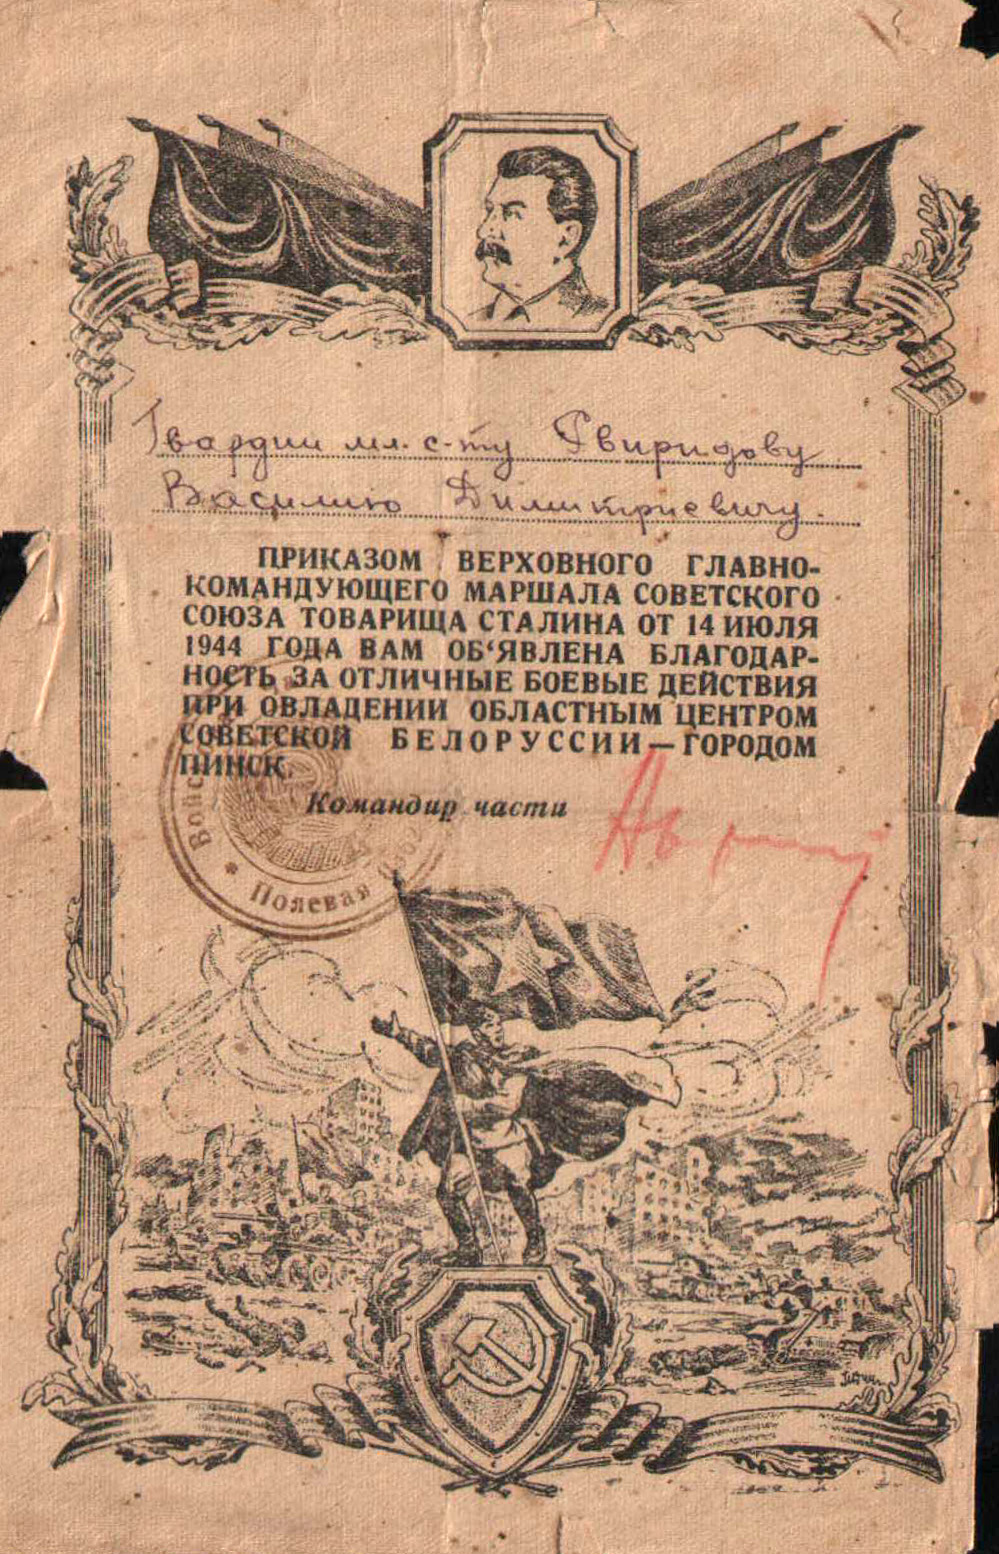 Гвардии мл. с-ту Свиридову
Василию Димитриевичу.
ПРИКАЗОМ ВЕРХОВНОГО ГЛАВНО-
КОМАНДУЮЩЕГО МАРШАЛА СОВЕТСКОГО
СОЮЗА ТОВАРИЩА СТАЛИНА ОТ 14 ИЮЛЯ
1944 ГОДА ВАМ ОБ‘ЯВЛЕНА БЛАГОДАР-
НОСТЬ ЗА ОТЛИЧНЫЕ БОЕВЫЕ ДЕЙСТВИЯ
ПРИ ОВЛАДЕНИИ ОБЛАСТНЫМ ЦЕНТРОМ
СОВЕТСКОЙ БЕЛОРУССИИ — ГОРОДОМ
ПИНСК.
Командир части
Полевая